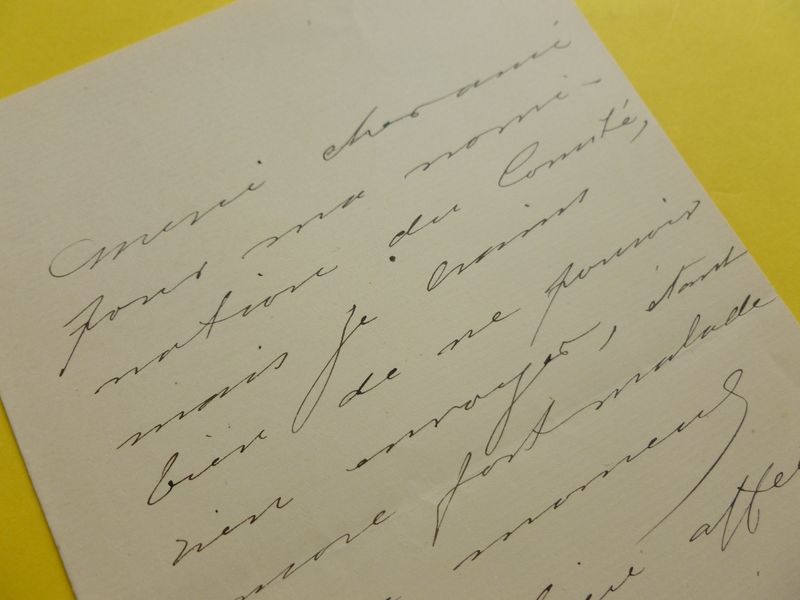 Merci cher ami
pour ma nomi-
nation du Comité,
mais je crains
bien de ne pouvoir
rien envoyer, étant
encore fort malade
moment
bien affec